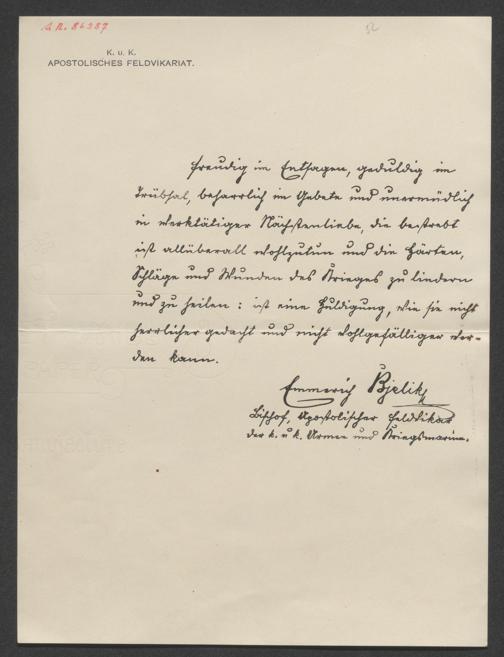 52
K. u. K.
APOSTOLISCHES FELDVIKARIAT.
Freudig im Entsagen, geduldig im
Trübsal, beharrlich im Gebete und unermüdlich
in werktätiger Nächstenliebe, die bestrebt
ist allüberall wohlzutun und die Härten,
Schläge und Wunden des Krieges zu lindern
und zu heilen: ist eine Huldigung, wie sie nicht
herrlicher gedacht und nicht wohlgefälliger wer-
den kann.
Emmerich Bjelik
Bischof, Apostolischer Feldvikar
der k. u. k. Armee und Kriegsmarine.